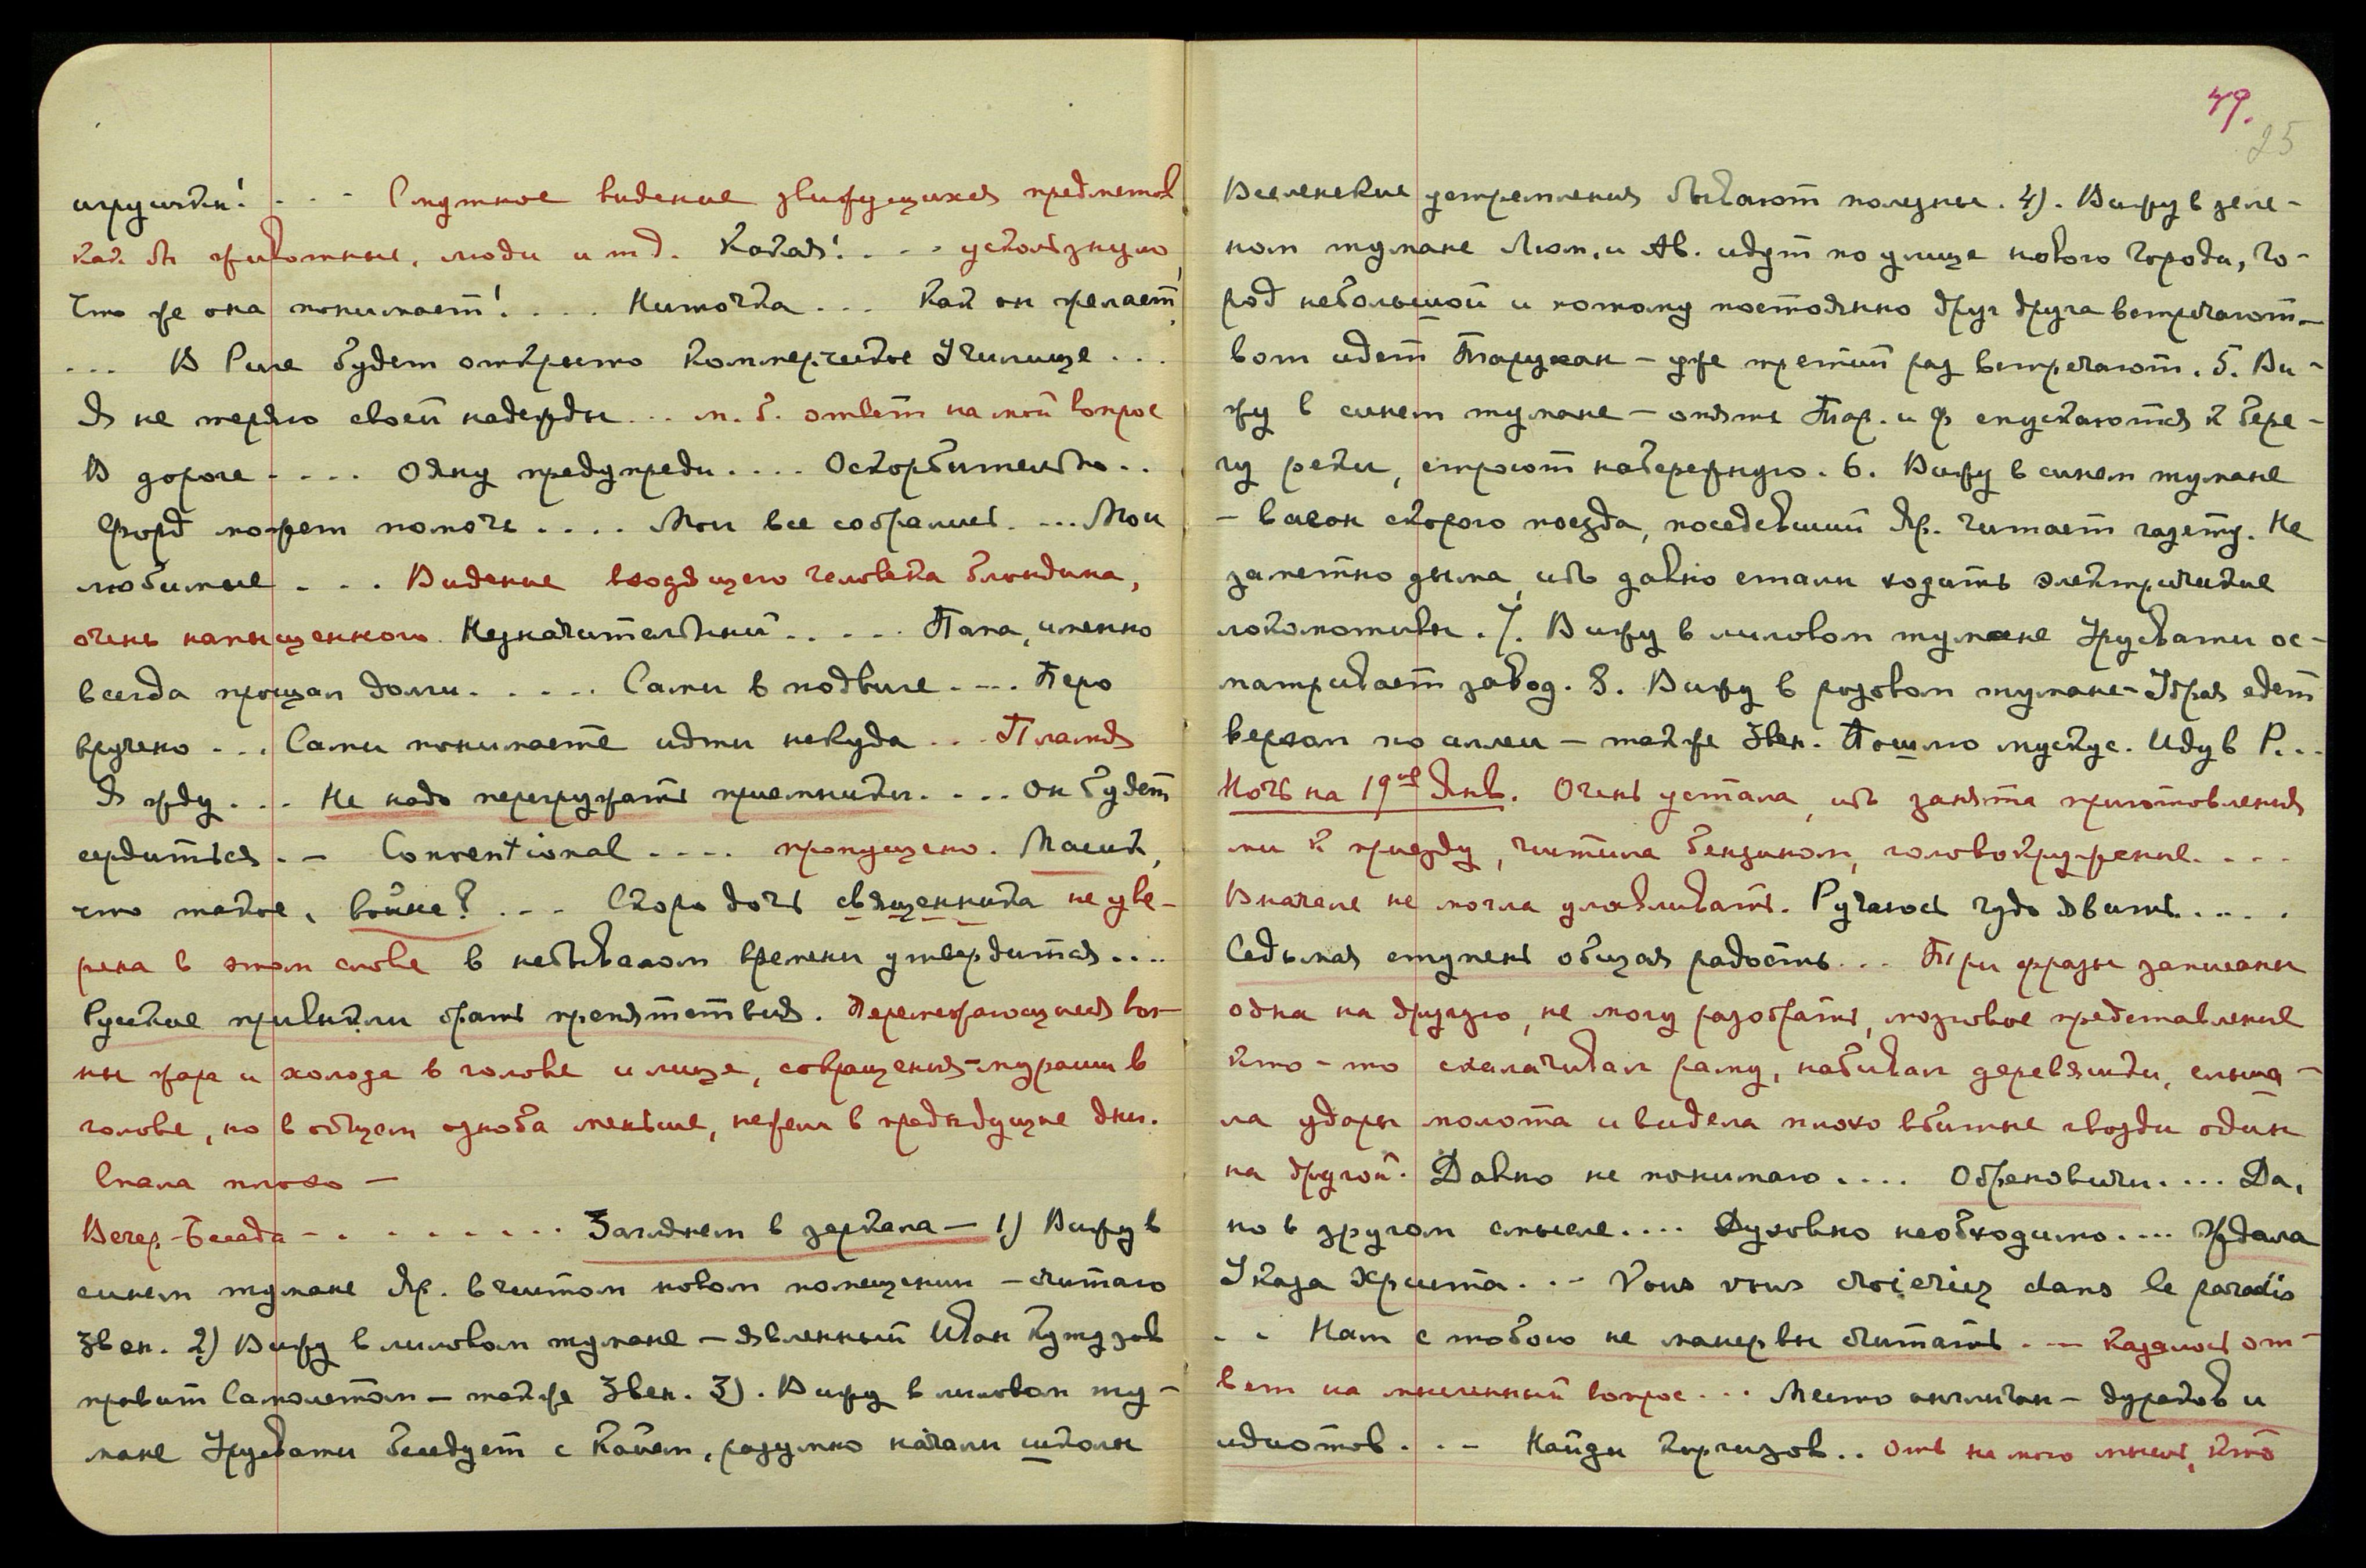 игрушки! . . - Смутное видение движущихся предметов
как бы животные, люди и т д. Какая! . . . ускользнуло,
Что же она понимает! . . . . Ниточка . . . Как он желает,
. . . В Риге будет открыто Коммерческое Училище . . .
Я не теряю своей надежды . . . м. б. ответ на мой вопрос
В дороге . . . . Ояну предупреди . . . . Оскорбительно . .
Форд может помочь . . . . Мои все собрались. . . . Мои
любимые . . . . Видение входящего человека блондина,
очень напыщенного. Незначительный . . . . . Папа, именно
всегда прощал долги. . . . . . Сами в подвиге . . . . Перо
вручено . . . Сами понимаете идти некуда . . . Пламя
Я жду . . . Не надо перегружать приемники. . . . . он будет
сердиться . – Conventional . . . . пропущено. Масик,
что такое, войне? . . . Скоро дочь священника не уве-
рена в этом слове в небывалом времени утвердится . . . .
Русские привыкли брать препятствия. Перемежающиеся вол-
ны жара и холода в голове и лице, сокращения-мураши в
голове, но в общем озноба меньше, нежели в предыдущие дни.
Спала плохо –
Вечер-Беседа – . . . . . . . . Заглянем в зеркала – 1) Вижу в
синем тумане Яр. в чистом новом помещении – читаю
Звен. 2) Вижу в лиловом тумане – явленный Иван Кутузов
правит Самолетом – также Звен. 3). Вижу в лиловом ту-
мане Урусвати беседует с Кайем, разумно начали школы
49.
25
Вселенские устремления бывают полезны. 4). Вижу в зеле-
ном тумане Люм. и Ав. идут по улице нового города, го-
род небольшой и потому постоянно друг друга встречают –
вот идет Тарухан – уже третий раз встречают. 5. Ви-
жу в синем тумане – опять Тар. и Ф спускаются к бере-
гу реки, строют набережную. 6. Вижу в синем тумане
– вагон скорого поезда, поседевший Яр. читает газету. Не
заметно дыма, ибо давно стали ходить электрические
локомотивы. 7. Вижу в лиловом тумане Урусвати ос-
матривает завод. 8. Вижу в розовом тумане – Удрая едет
верхом по аллеи – также Звен. Пошлю мускус. Иду в Р. . .
Ночь на 19ое Янв. Очень устала, ибо занята приготовления
ми к приезду, чистила бензином, головокружение. . . .
Вначале не могла улавливать. Ручаюсь чудо явить . . . . .
Седьмая ступень общая радость . . . Три фразы записаны
одна на другую, не могу разобрать, мозговое представление
кто-то сколачивал раму, набивал деревяшки, слыша-
ла удары молота и видела плохо вбитые гвозди один
на другой. Давно не понимаю . . . . Обреновичи . . . . Да,
но в другом смысле . . . . Духовно необходимо . . . . Ждала
Указа Христа. . – Vous vous croieriez dans le paradis
. . Нам с тобою не манервы считать . – Казалось от-
вет на мысленный вопрос . . . Место англичан – дураков и
идиотов . . – Найди Киргизов . . Ответ на мою мысль, кто